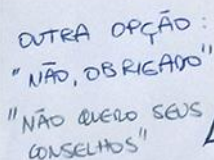 OUTRA OPÇÃO:
"NÃO, OBRIGADO"
"NÃO QUERO SEUS
CONSELHOS"